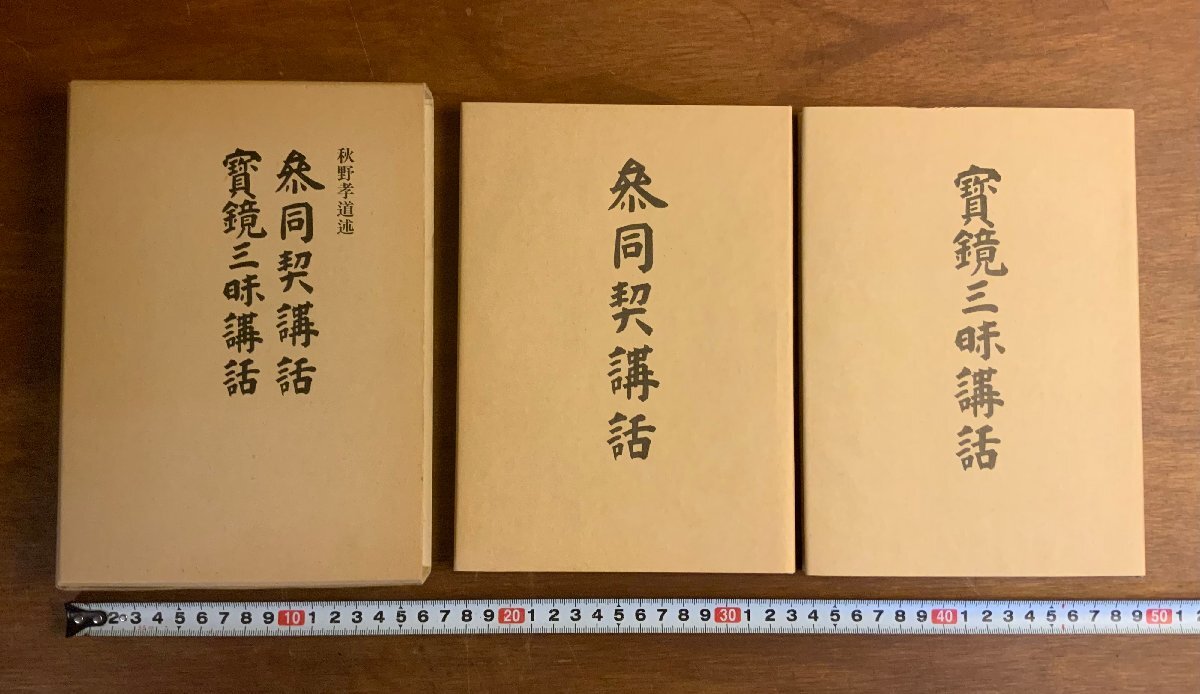 秋野孝道述
参同契講話
寳鏡三昧講話
参同契講話
寳鏡三昧講話
2 3 4 5 6 7 8 9 10 1 2 3 4 5 6 7 8 9 20 1 2 3 4 5 6 7 8 9 30 1 2 3 4 5 6 7 8 9 40 1 2 3 4 5 6 7 8 9 50 1